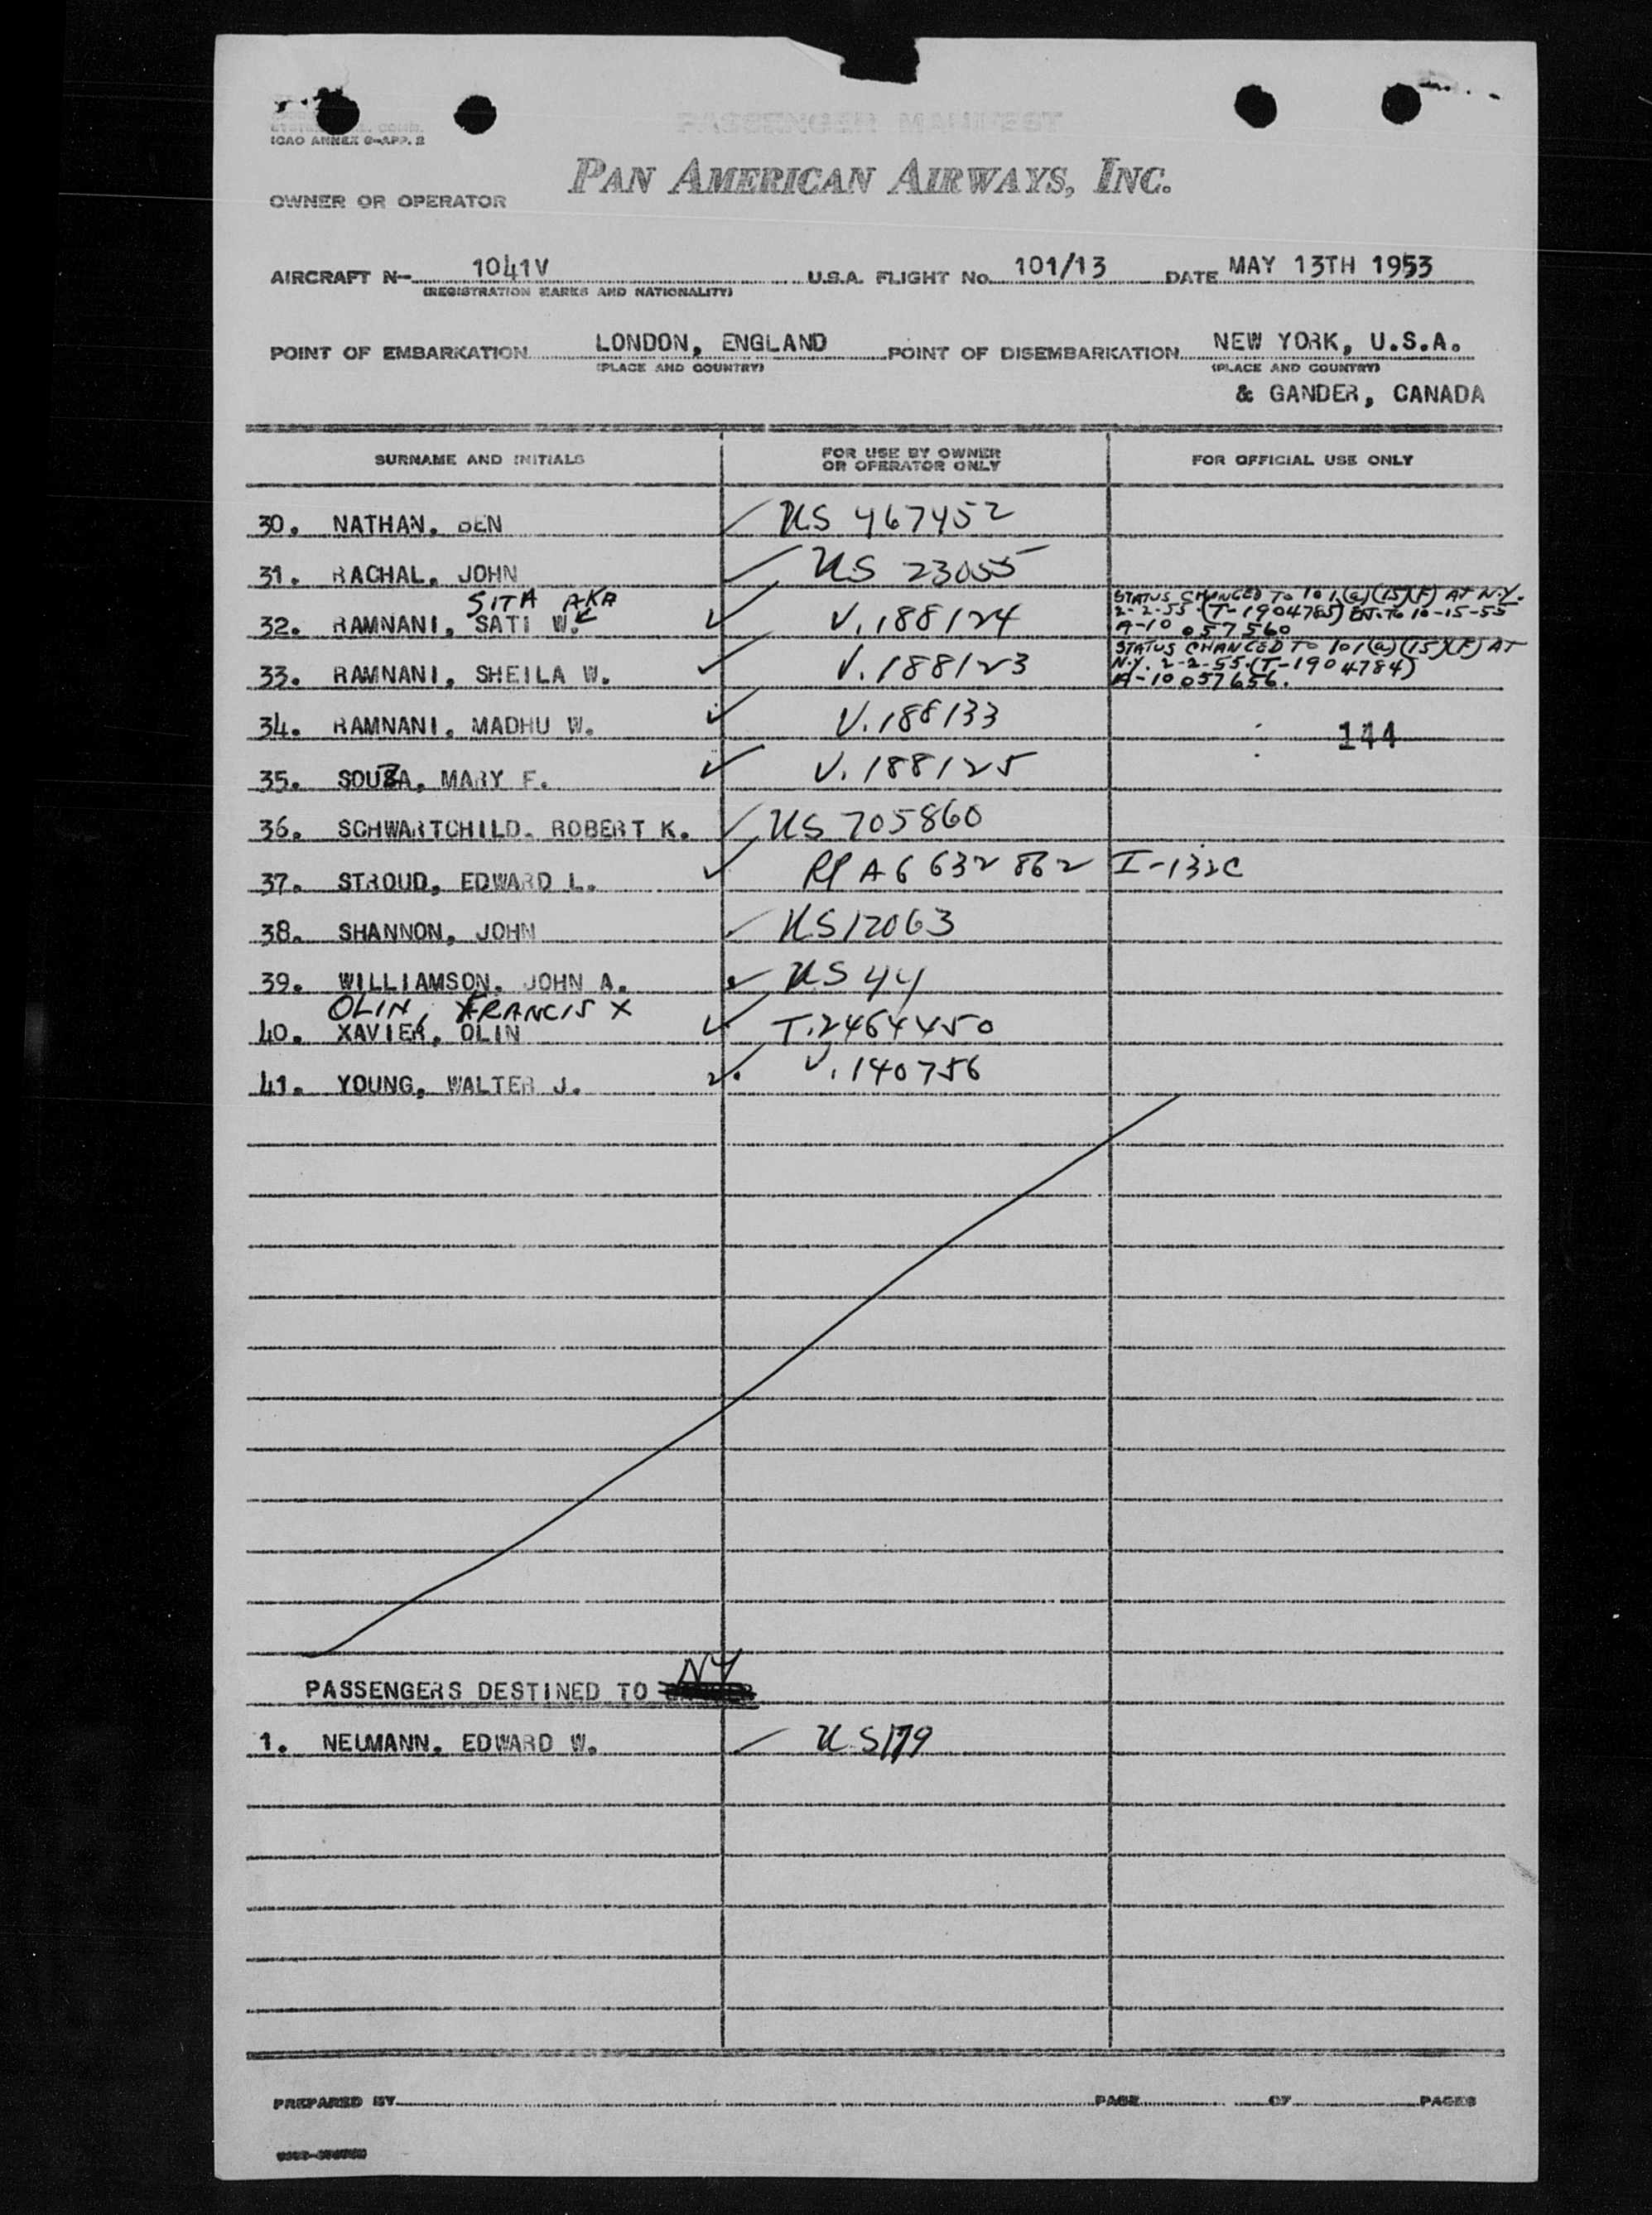 PASSENGER MANIFEST
ICAO ANNEX 9-APP. 2
PAN AMERICAN AIRWAYS, INC.
OWNER OR OPERATOR
AIRCRAFT N- 1041V U.S.A. FLIGHT No. 101/13 DATE MAY 13TH 1953
(REGISTRATION MARKS AND NATIONALITY)
POINT OF EMBARKATION LONDON, ENGLAND POINT OF DISEMBARKATION NEW YORK, U.S.A.
(PLACE AND COUNTRY) (PLACE AND COUNTRY)
& GANDER, CANADA
SURNAME AND INITIALS FOR USE BY OWNER OR OPERATOR ONLY FOR OFFICIAL USE ONLY
30. NATHAN, BEN ✓ US 467452
31. RACHAL, JOHN ✓ US 23055
SITA AKA STATUS CHANGED TO 101(a)(15)(F) AT N.Y.
32. RAMNANI, SATI W. ✓ V.188124 2-2-55 (T-1904785) EXT. TO 10-15-55
A-10 057560
STATUS CHANGED TO 101(a)(15)(F) AT
33. RAMNANI, SHEILA W. ✓ V.188123 N.Y. 2-2-55. (T-1904784)
A-10 057656.
34. RAMNANI, MADHU W. ✓ V.188133 144
35. SOUZA, MARY F. ✓ V.188125
36. SCHWARTCHILD, ROBERT K. ✓ US 705860
37. STROUD, EDWARD L. ✓ RP A6 632 862 I-132C
38. SHANNON, JOHN ✓ US 12063
39. WILLIAMSON, JOHN A. ✓ US 44
OLIN, FRANCIS X
40. XAVIER, OLIN ✓ T.2464450
41. YOUNG, WALTER J. ✓ V.140756
NY
PASSENGERS DESTINED TO
1. NEUMANN, EDWARD W. ✓ US 179
PREPARED BY PAGE OF PAGES